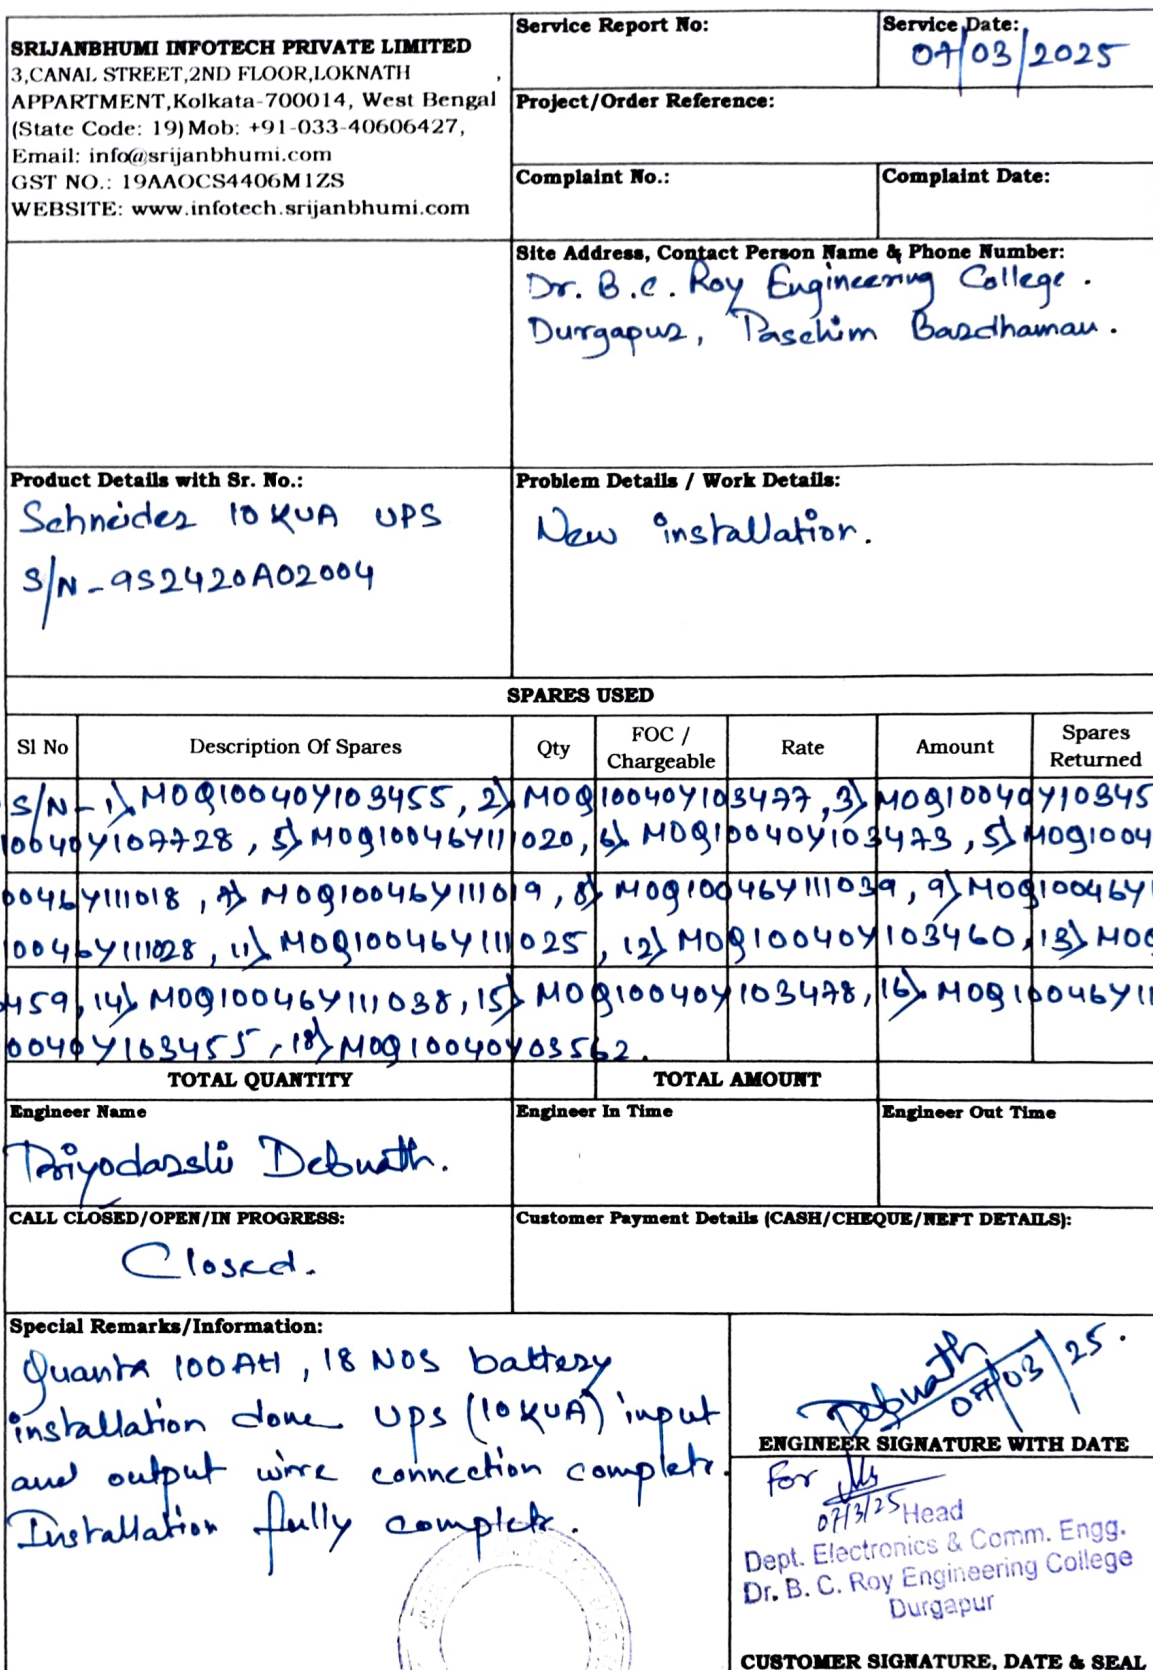 SRIJANBHUMI INFOTECH PRIVATE LIMITED
3,CANAL STREET,2ND FLOOR,LOKNATH ,
APPARTMENT,Kolkata-700014, West Bengal
(State Code: 19) Mob: +91-033-40606427,
Email: info@srijanbhumi.com
GST NO.: 19AAOCS4406M1ZS
WEBSITE: www.infotech.srijanbhumi.com
Service Report No:
Service Date:
07/03/2025
Project/Order Reference:
Complaint No.:
Complaint Date:
Site Address, Contact Person Name & Phone Number:
Dr. B.C. Roy Engineering College.
Durgapur, Paschim Bardhaman.
Product Details with Sr. No.:
Schneider 10 KVA UPS
S/N-9S2420A02004
Problem Details / Work Details:
New installation.
SPARES USED
Sl No Description Of Spares Qty FOC / Chargeable Rate Amount Spares Returned
S/N-1) M0Q10040Y103455, 2) M0Q10040Y103477, 3) M0Q10040Y10345
10040Y107728, 5) M0Q10046Y111020, 6) M0Q10040Y103473, 5) M0Q1004
0046Y111018, 7) M0Q10046Y111019, 8) M0Q10046Y111039, 9) M0Q10046Y1
10046Y111028, 11) M0Q10046Y111025, 12) M0Q10040Y103460, 13) M0Q
459, 14) M0Q10046Y111038, 15) M0Q10040Y103478, 16) M0Q10046Y11
0040Y103455, 18) M0Q10040Y03562.
TOTAL QUANTITY TOTAL AMOUNT
Engineer Name
Priyodarshi Debnath.
Engineer In Time
Engineer Out Time
CALL CLOSED/OPEN/IN PROGRESS:
Closed.
Customer Payment Details (CASH/CHEQUE/NEFT DETAILS):
Special Remarks/Information:
Quanta 100AH, 18 NOS battery
installation done UPS (10KVA) input
and output wire connection complete.
Installation fully complete.
Debnath
07/03/25.
ENGINEER SIGNATURE WITH DATE
For
07/3/25
Head
Dept. Electronics & Comm. Engg.
Dr. B. C. Roy Engineering College
Durgapur
CUSTOMER SIGNATURE, DATE & SEAL